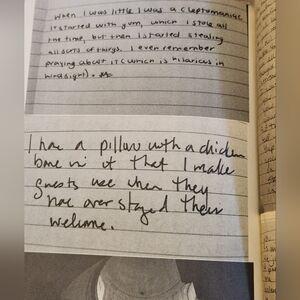 When I was little I was a cleptomaniac
it started with gum, which I stole all
the time, but then I started stealing
all sorts of things. I even remember
praying about it (which is hilarious in
hindsight).
I have a pillow with a chicken
bone in it that I make
guests use when they
have over stayed their
welcome.